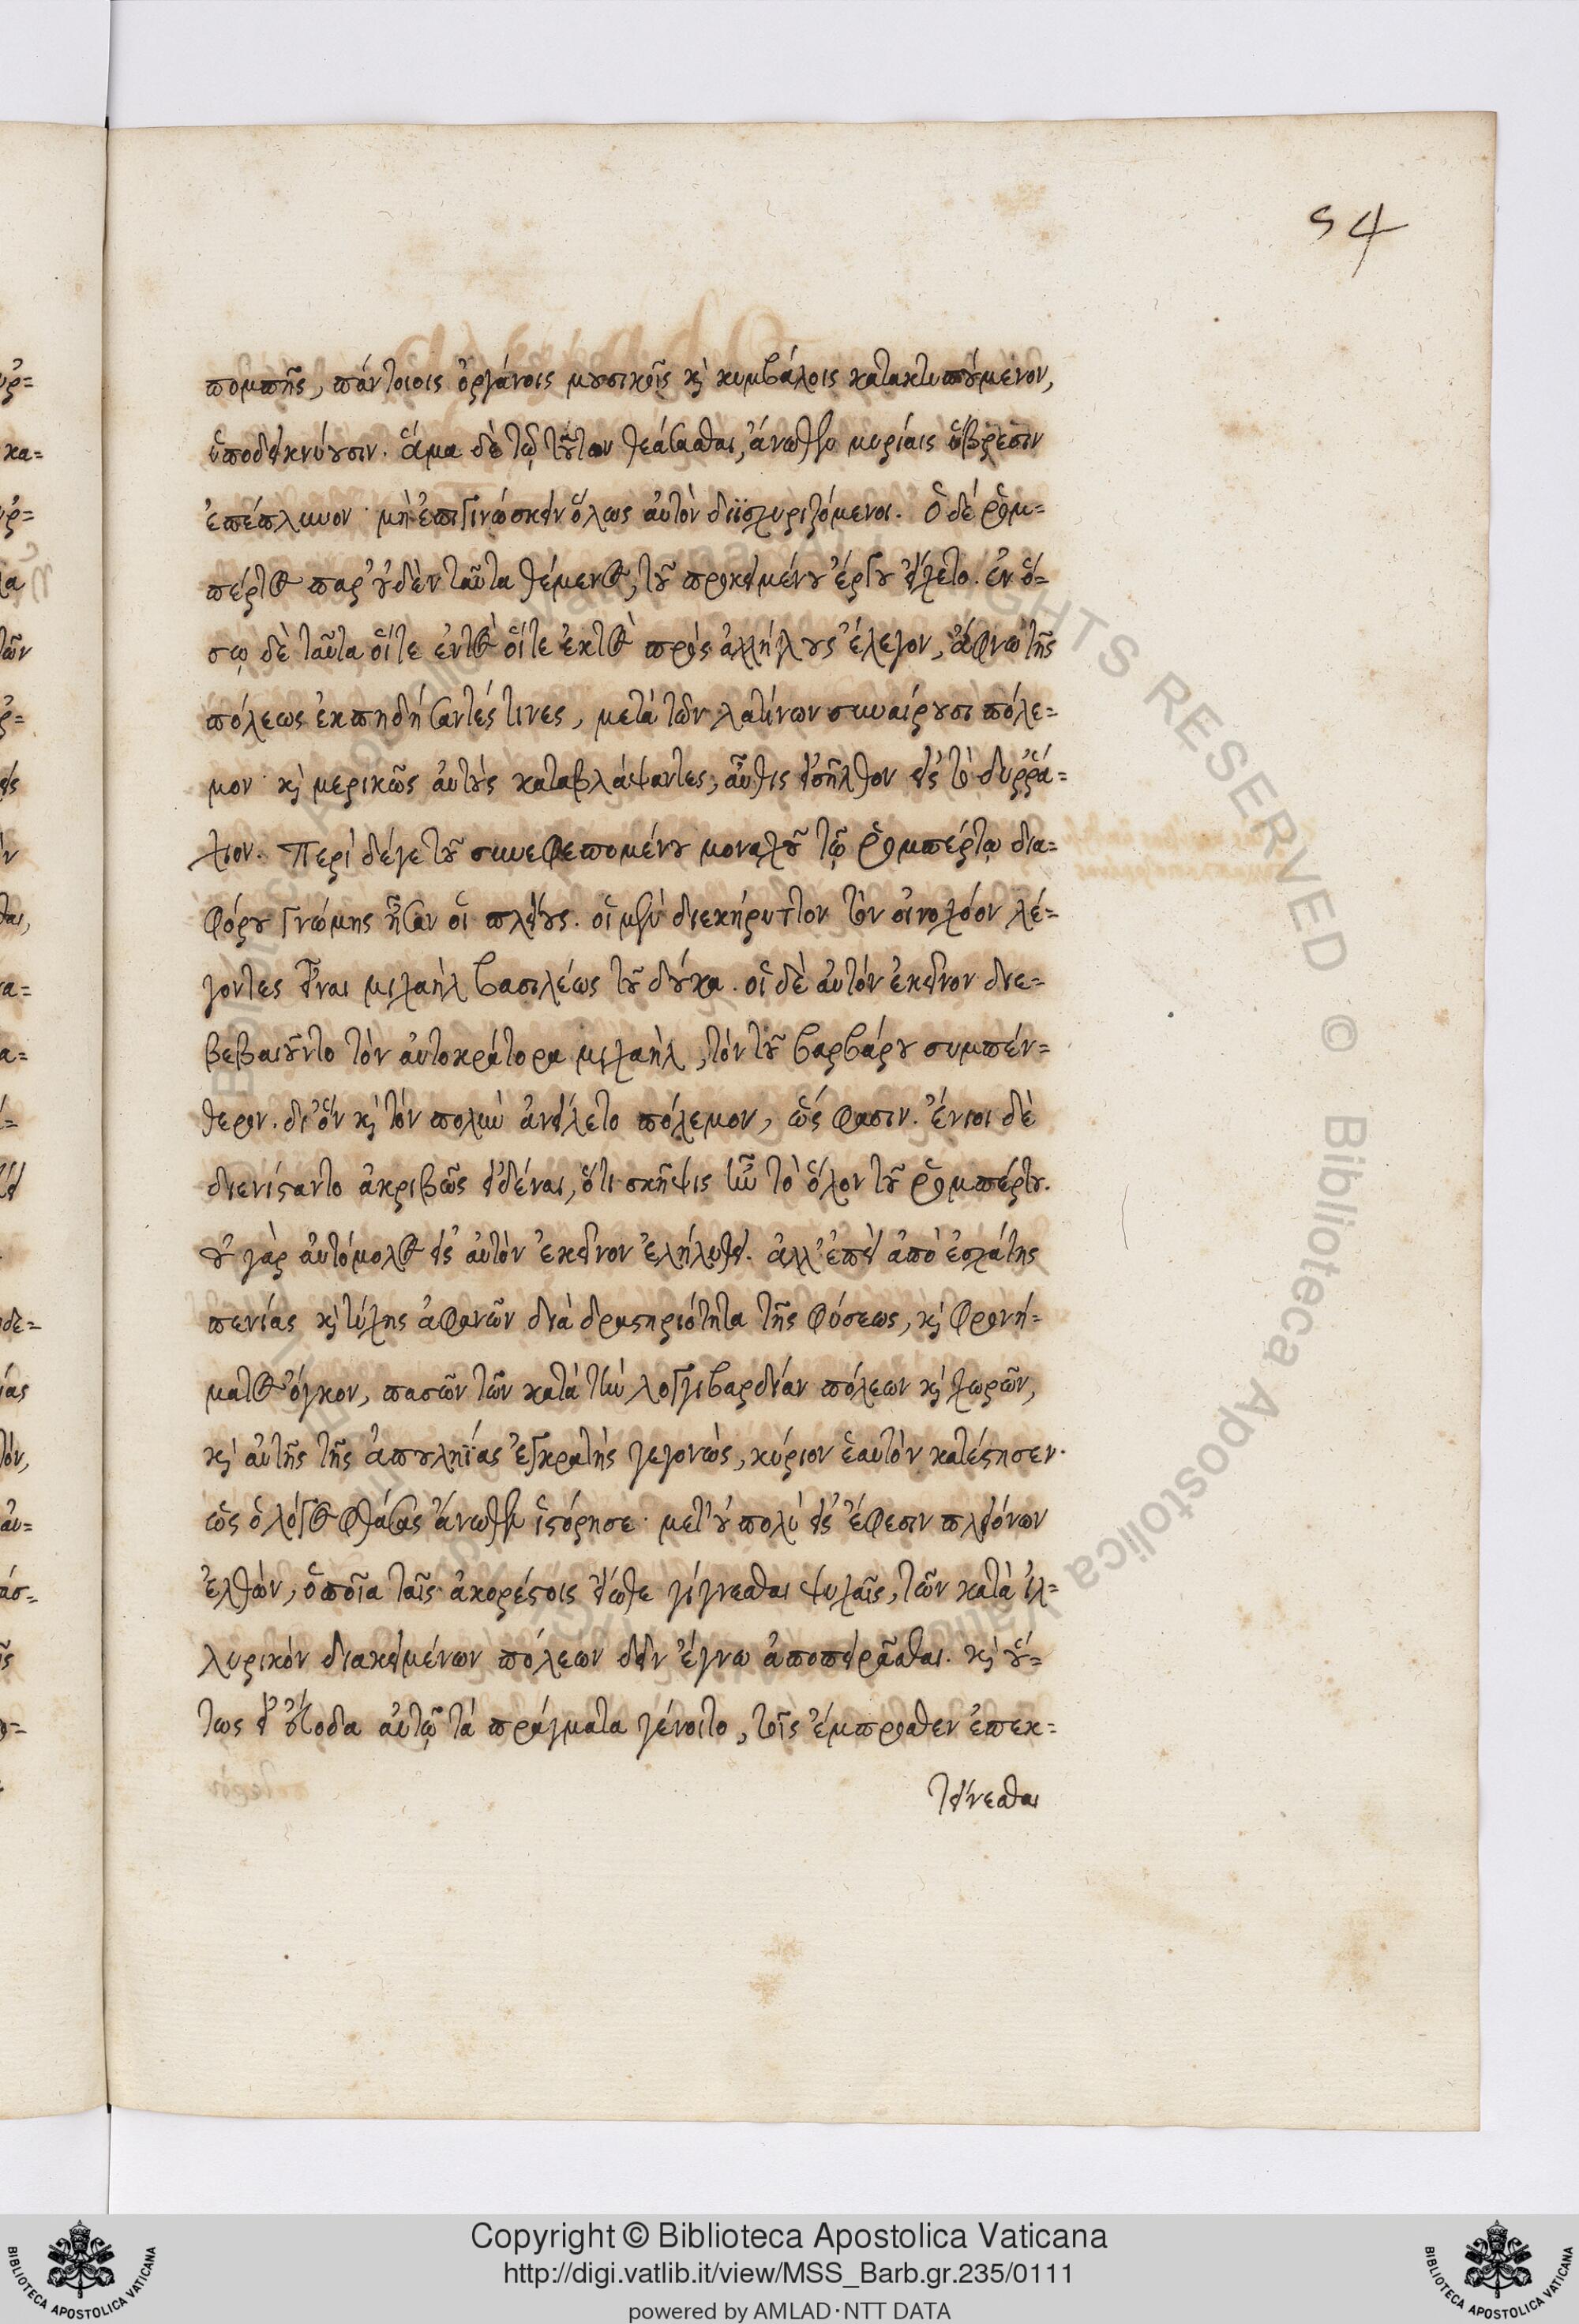 54
πομπῆς, πάντοιοις ὀργάνοις μουσικοῖς καὶ κυμβάλοις κατακτυπούμενον,
ὑποδεικνύουσιν. ἅμα δὲ τῷ τοῦτον θεάσασθαι, ἄνωθεν μυρίαις ὕβρεσιν
ἐπέπλυνον· μὴ ἐπιγινώσκειν ὅλως αὐτὸν διϊσχυριζόμενοι. Ὁ δὲ ῥομ=
πέρτος παρ' οὐδὲν ταῦτα θέμενος, τοῦ προκειμένου ἔργου εἴχετο. ἐν ὅ=
σῳ δὲ ταῦτα οἵ τε ἐντὸς οἵ τε ἐκτὸς πρὸς ἀλλήλους ἔλεγον, ἄφνω τῆς
πόλεως ἐκπηδήσαντές τινες, μετὰ τῶν λατίνων συναίρουσι πόλε=
μον· καὶ μερικῶς αὐτοὺς καταβλάψαντες, αὖθις εἰσῆλθον εἰς τὸ δυῤῥά=
χιον. Περὶ δέγε τοῦ συνεφεπομένου μοναχοῦ τῷ ῥομπέρτῳ δια=
φόρου γνώμης ἦσαν οἱ πλείους. οἱ μὲν διεκήρυττον τὸν οἰνοχόον λέ=
γοντες εἶναι μιχαὴλ βασιλέως τοῦ δούκα. οἱ δὲ αὐτὸν ἐκεῖνον διε=
βεβαιοῦντο τὸν αὐτοκράτορα μιχαὴλ, τὸν τοῦ βαρβάρου συμπέν=
θερον. δι' ὃν καὶ τὸν πολὺν ἀνείλετο πόλεμον, ὥς φασιν. ἔνιοι δὲ
διενίσταντο ἀκριβῶς εἰδέναι, ὅτι σκῆψις ἦν τὸ ὅλον τοῦ ῥομπέρτου.
οὐ γὰρ αὐτόμολος εἰς αὐτὸν ἐκεῖνον ἐληλύθει. ἀλλ' ἐπεὶ ἀπὸ ἐσχάτης
πενίας καὶ τύχης ἀφανῶν διὰ δραστηριότητα τῆς φύσεως, καὶ φρονή=
ματος ὄγκον, πασῶν τῶν κατὰ τὴν λογγιβαρδίαν πόλεων καὶ χωρῶν,
καὶ αὐτῆς τῆς ἀπουληΐας ἐγκρατὴς γεγονὼς, κύριον ἑαυτὸν κατέστησεν.
ὡς ὁ λόγος φθάσας ἄνωθεν ἱστόρησε· μετ' οὐ πολὺ εἰς ἔφεσιν πλειόνων
ἐλθὼν, ὁποῖα ταῖς ἀκορέστοις εἴωθε γίγνεσθαι ψυχαῖς, τῶν κατὰ ἰλ=
λυρικὸν διακειμένων πόλεων δεῖν ἔγνω ἀποπειρᾶσθαι. καὶ οὕ=
τως εἰ εὔοδα αὐτῷ τὰ πράγματα γένοιτο, τοῖς ἔμπροσθεν ἐπεκ=
τείνεσθαι
Copyright © Biblioteca Apostolica Vaticana
http://digi.vatlib.it/view/MSS_Barb.gr.235/0111
powered by AMLAD·NTT DATA
BIBLIOTECA APOSTOLICA VATICANA
BIBLIOTECA APOSTOLICA VATICANA